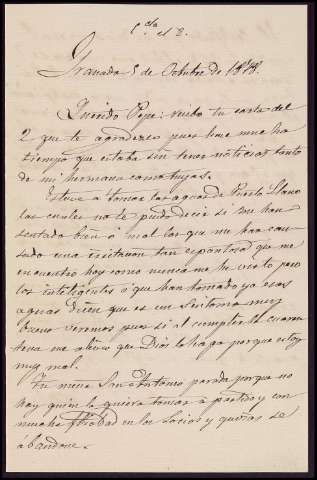 C.da
el 8.
Granada 5 de Octubre de 1878.
Querido Pepe: recibo tu carta del
2 que te agradezco pues hace mucho
tiempo que estaba sin tener noticias tanto
de mi hermano como tuyas.
Estuve a tomar las aguas de Puerto Llano
las cuales no te puedo decir si me han
sentado bien ó mal las que me han cau-
sado una escitacion tan espantosa que me
encuentro hoy como nunca me he visto pero
los inteligentes ó que han tomado ya esas
aguas dicen que es un sintoma muy
bueno veremos pues si al cumplir la cuaren
tena me alivio que Dios lo haga porque estoy
muy mal.
Tu mina San Antonio parada porque no
hay quien la quiera tomar a partido y con
mucha en los Socios y quizás se
ábandone.